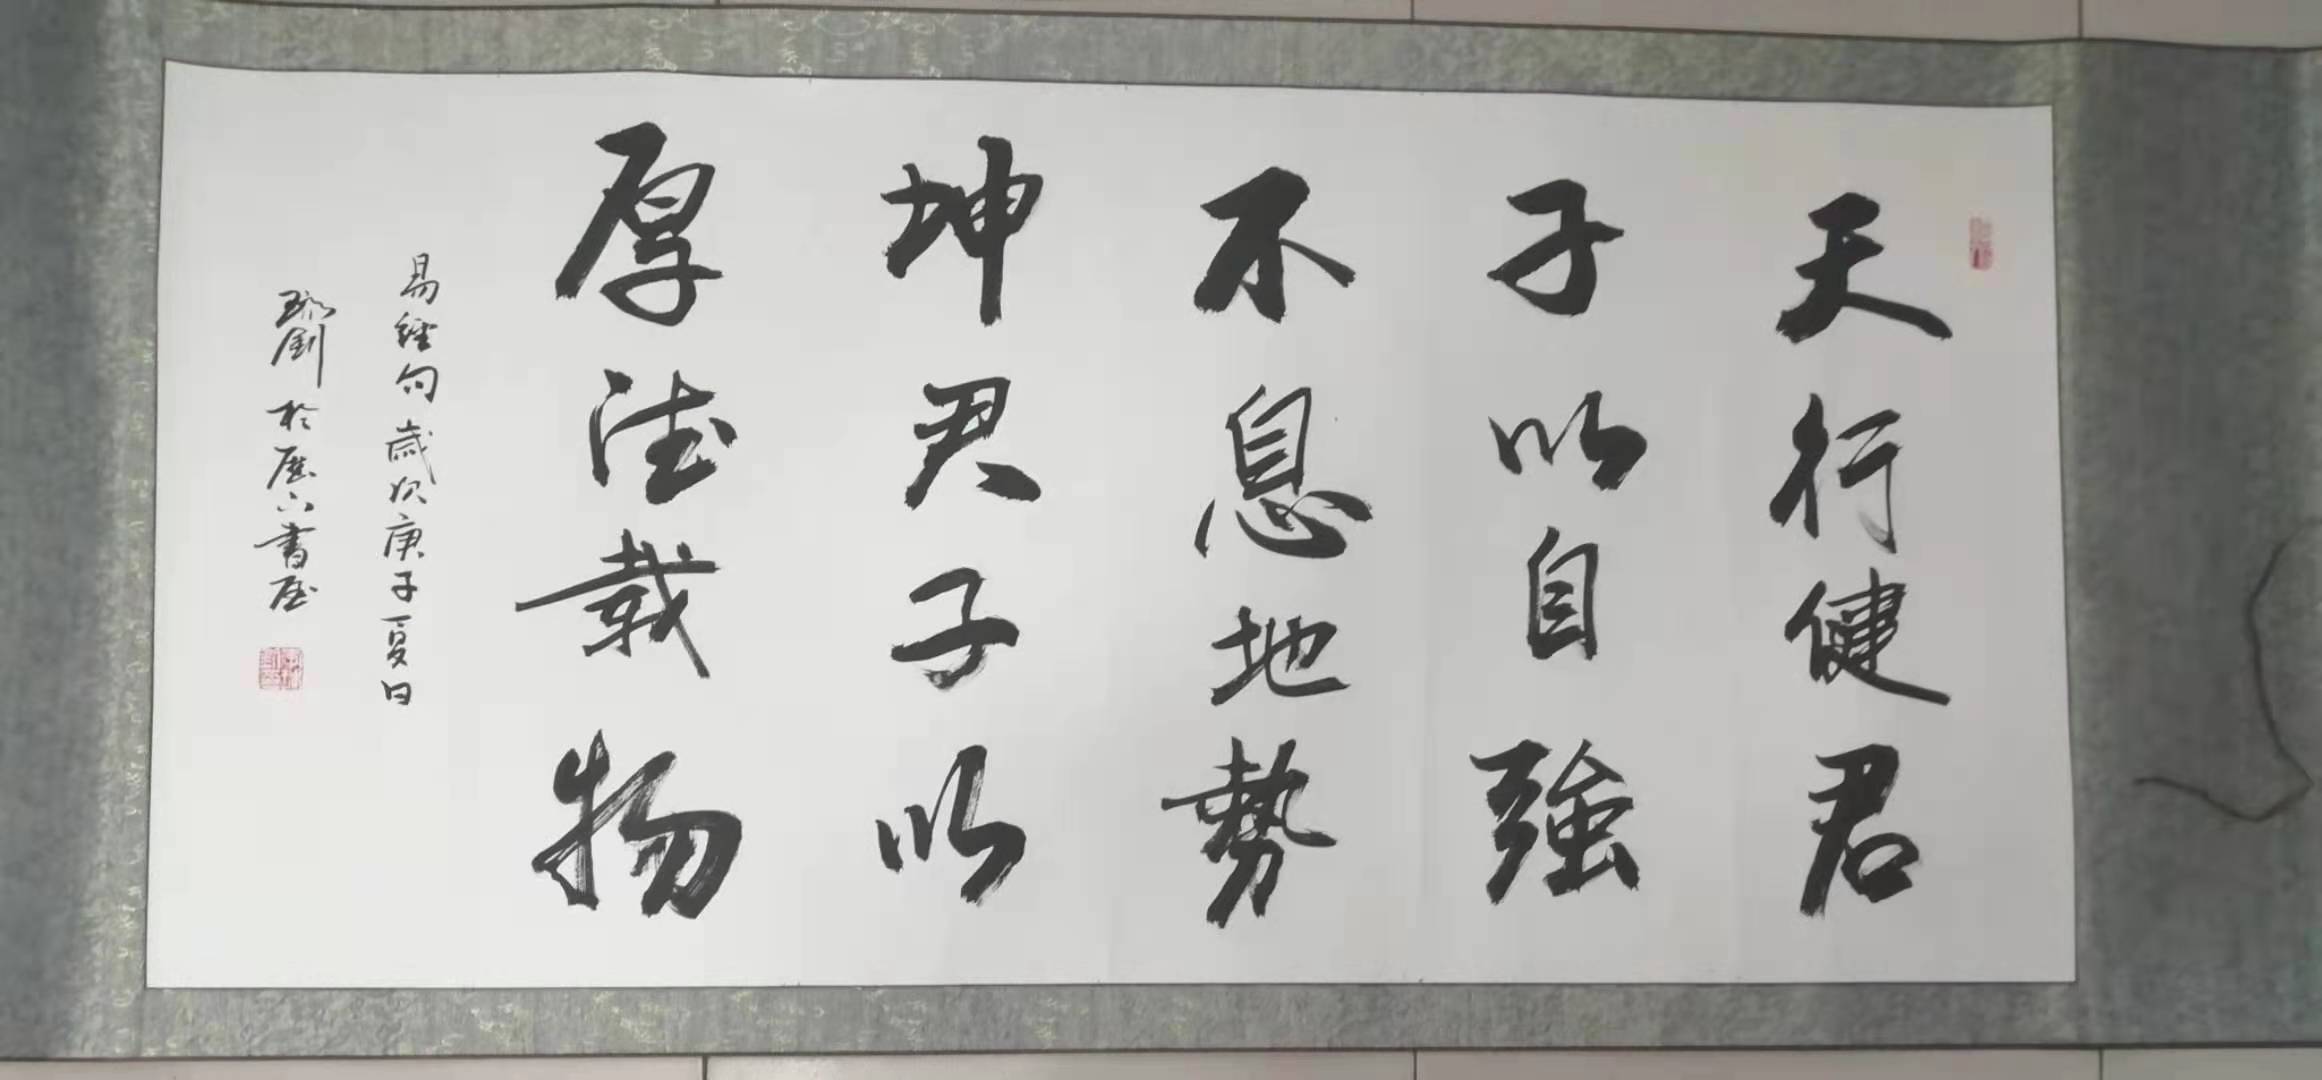 天行健君
子以自強
不息地勢
坤君子以
厚德載物
易經句歲次庚子夏日
於歷下書屋